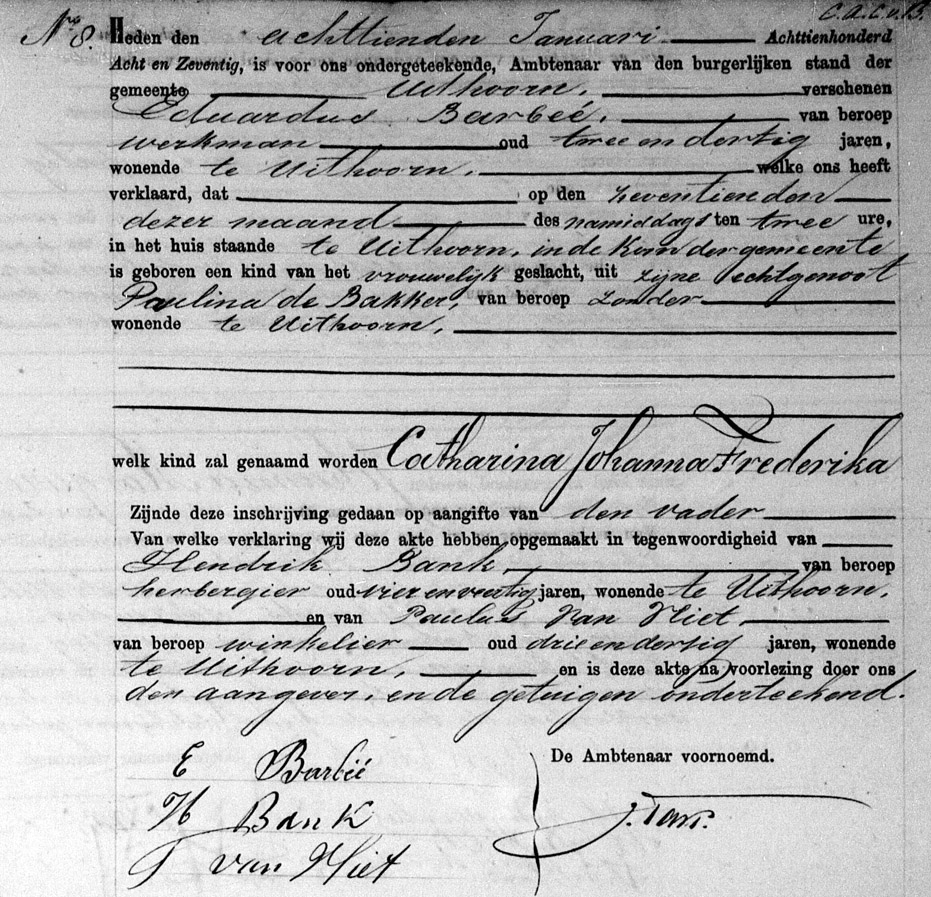 C.A.C.v.B.
No 8. Heden den achttienden Januari Achttienhonderd
Acht en Zeventig, is voor ons ondergeteekende, Ambtenaar van den burgerlijken stand der
gemeente Uithoorn, verschenen
Eduardus Barbeé, van beroep
werkman oud twee en dertig jaren,
wonende te Uithoorn, welke ons heeft
verklaard, dat op den zeventienden
dezer maand des namiddags ten twee ure,
in het huis staande te Uithoorn, in de kom der gemeente
is geboren een kind van het vrouwelijk geslacht, uit zijne echtgenoot
Paulina de Bakker, van beroep zonder
wonende te Uithoorn,
welk kind zal genaamd worden Catharina Johanna Frederika
Zijnde deze inschrijving gedaan op aangifte van den vader
Van welke verklaring wij deze akte hebben opgemaakt in tegenwoordigheid van
Hendrik Bank, van beroep
herbergier oud vier en veertig jaren, wonende te Uithoorn,
en van Paulus van Vliet,
van beroep winkelier oud drie en dertig jaren, wonende
te Uithoorn, en is deze akte na voorlezing door ons
den aangever, en de getuigen onderteekend.
De Ambtenaar voornoemd.
E Barbeé
H Bank
P van Vliet